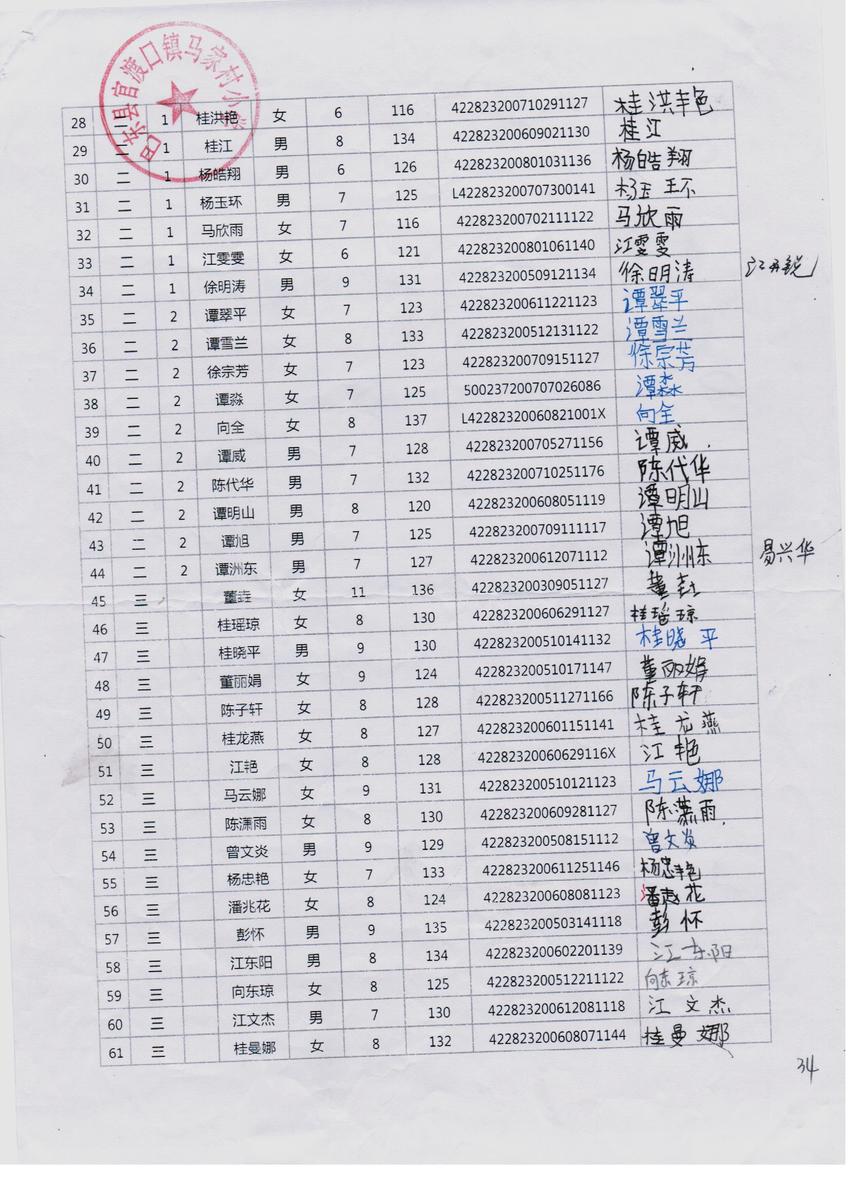 巴东县官渡口镇马家村小学
28 二 1 桂洪艳 女 6 116 422823200710291127 桂洪艳
29 二 1 桂江 男 8 134 422823200609021130 桂江
30 二 1 杨皓翔 男 6 126 422823200801031136 杨皓翔
31 二 1 杨玉环 男 7 125 L422823200707300141 杨玉环
32 二 1 马欣雨 女 7 116 422823200702111122 马欣雨
33 二 1 江雯雯 女 6 121 422823200801061140 江雯雯
34 二 1 徐明涛 男 9 131 422823200509121134 徐明涛
35 二 2 谭翠平 女 7 123 422823200611221123 谭翠平
36 二 2 谭雪兰 女 8 133 422823200512131122 谭雪兰
37 二 2 徐宗芳 女 7 123 422823200709151127 徐宗芳
38 二 2 谭淼 女 7 125 500237200707026086 谭淼
39 二 2 向全 女 8 137 L42282320060821001X 向全
40 二 2 谭威 男 7 128 422823200705271156 谭威
41 二 2 陈代华 男 7 132 422823200710251176 陈代华
42 二 2 谭明山 男 8 120 422823200608051119 谭明山
43 二 2 谭旭 男 7 125 422823200709111117 谭旭
44 二 2 谭洲东 男 7 127 422823200612071112 谭洲东 易兴华
45 三 董垚 女 11 136 422823200309051127 董垚
46 三 桂瑶琼 女 8 130 422823200606291127 桂瑶琼
47 三 桂晓平 男 9 130 422823200510141132 桂晓平
48 三 董丽娟 女 9 124 422823200510171147 董丽娟
49 三 陈子轩 女 8 128 422823200511271166 陈子轩
50 三 桂龙燕 女 8 127 422823200601151141 桂龙燕
51 三 江艳 女 8 128 42282320060629116X 江艳
52 三 马云娜 女 9 131 422823200510121123 马云娜
53 三 陈潇雨 女 8 130 422823200609281127 陈潇雨
54 三 曾文炎 男 9 129 422823200508151112 曾文炎
55 三 杨忠艳 女 7 133 422823200611251146 杨忠艳
56 三 潘兆花 女 8 124 422823200608081123 花
57 三 彭怀 男 9 135 422823200503141118 彭怀
58 三 江东阳 男 8 134 422823200602201139 江东阳
59 三 向东琼 女 8 125 422823200512211122 向东琼
60 三 江文杰 男 7 130 422823200612081118 江文杰
61 三 桂曼娜 女 8 132 422823200608071144 桂曼娜
34